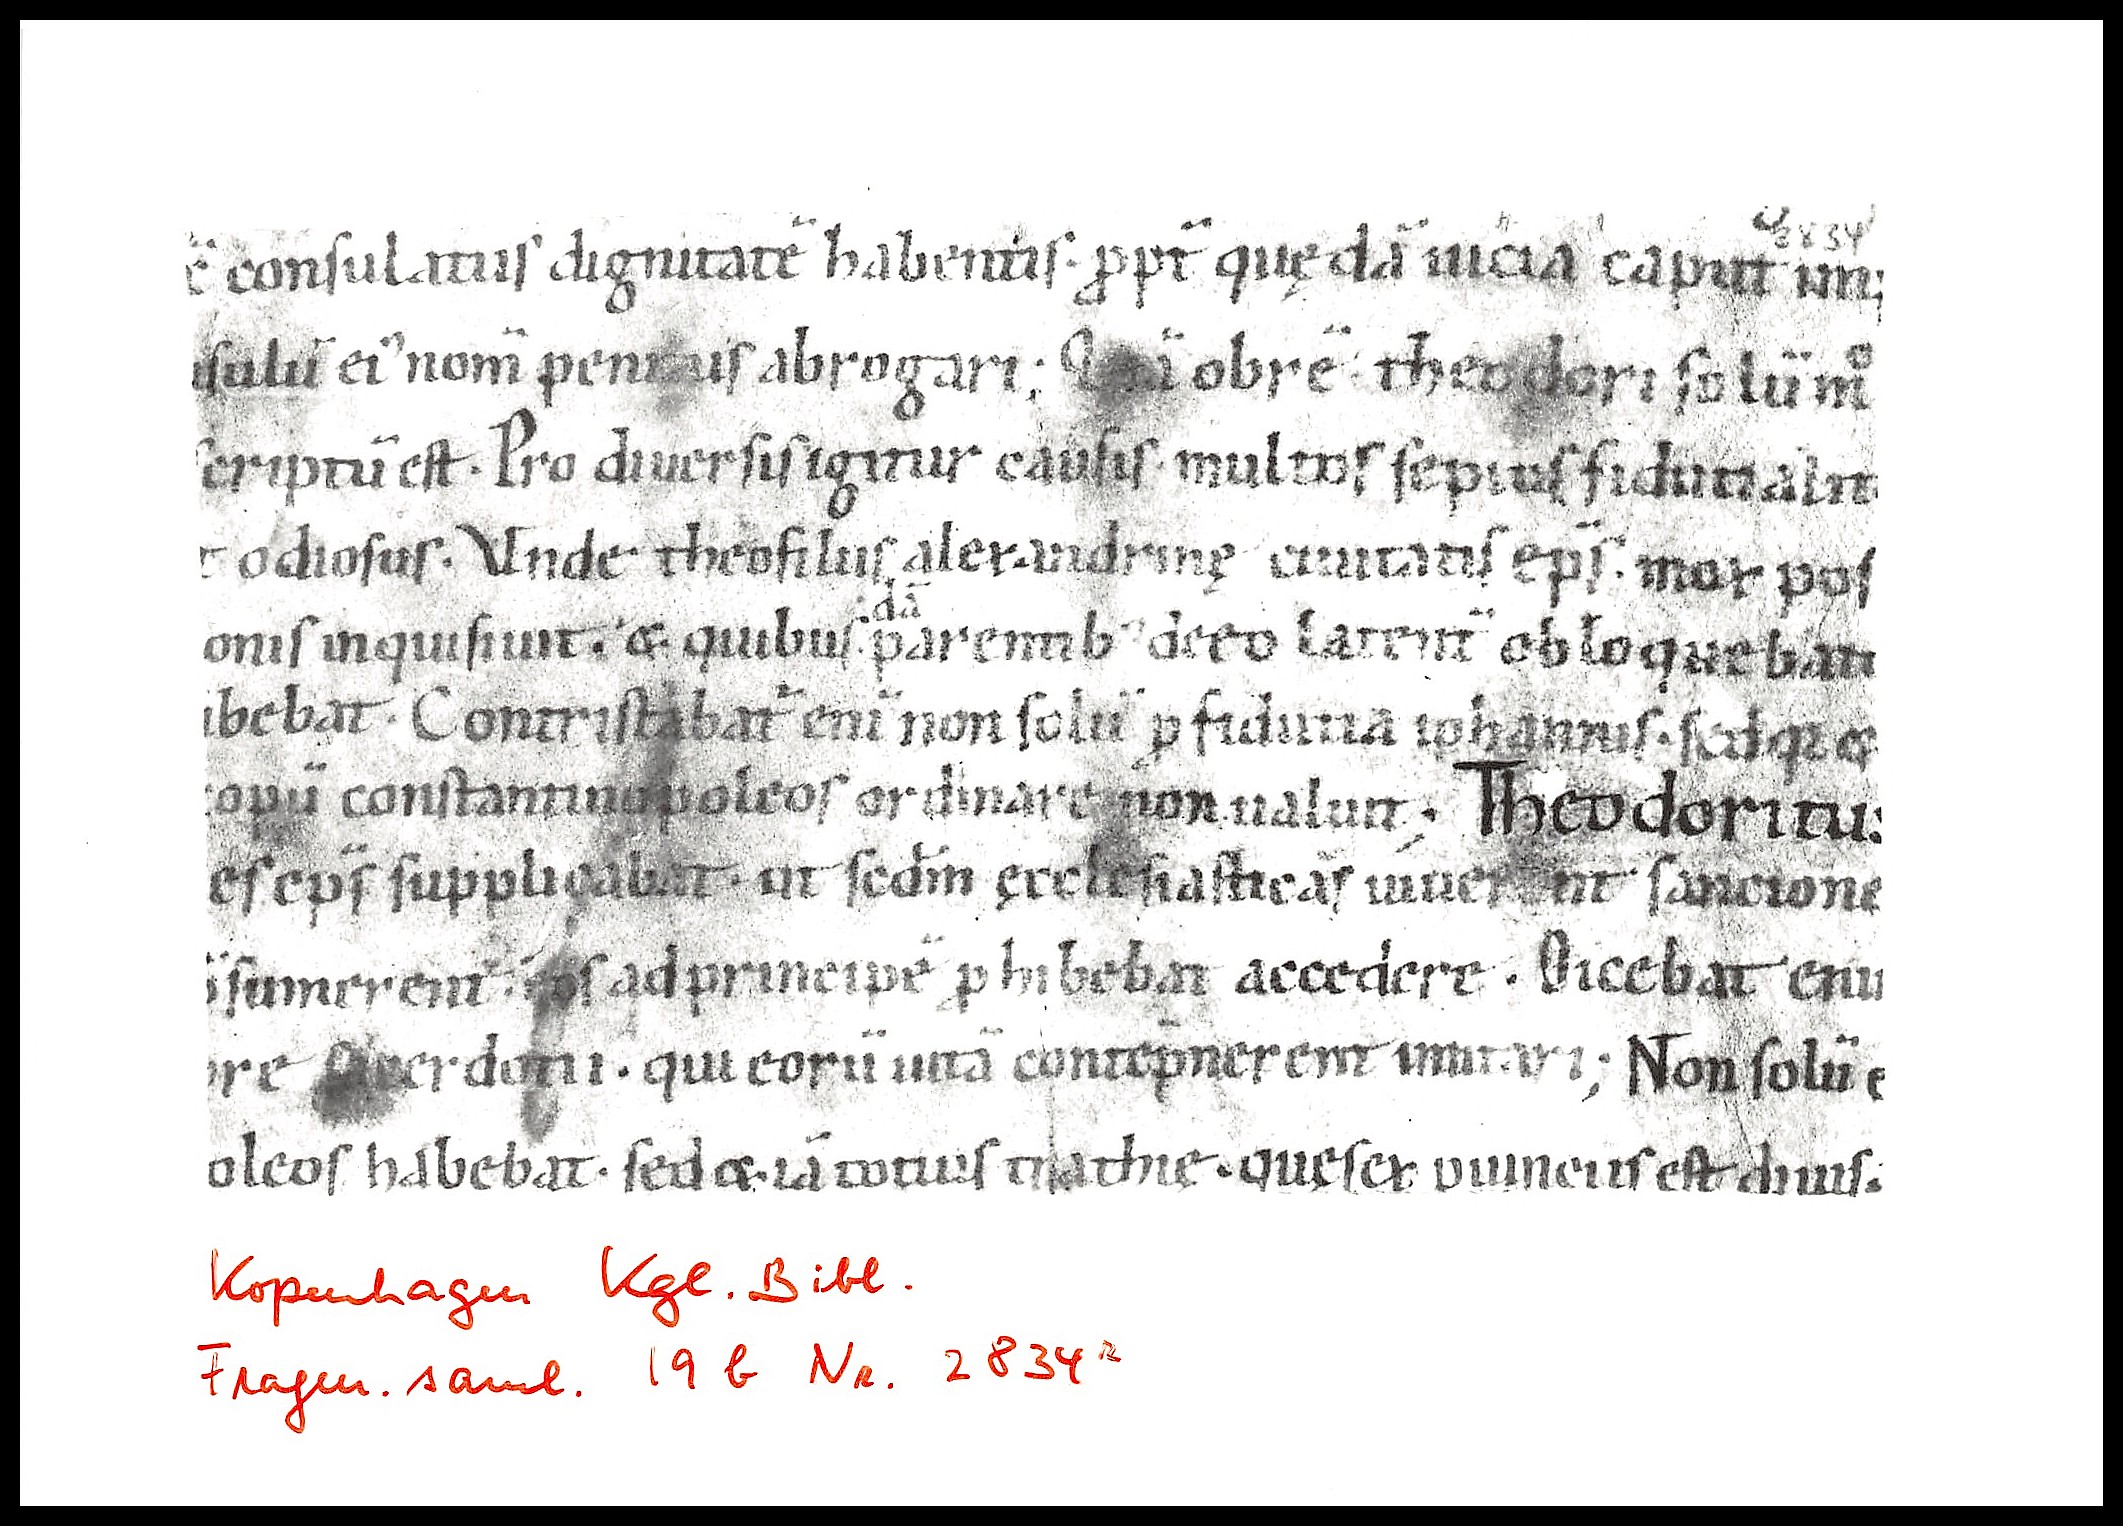 2834
ē consulatus dignitatē habentis· ꝓpt̄ quędā iuicia caput
sulū ei' nom̄ penitus abrogari; Quā obrē theodori solū m°
scriptū est· Pro diuersis igitur causis· multos sepius fidutialit
t odiosus· Unde theofilus alexandrinę ciuitatis ep̄s· mox pos
onis inquisiuit· & quibusdā parentib' deeo latent̄ obloqueban
ibebat· Contristabat̄ enī non solū ꝑ fidutia iohannis· sed qꝫ &
copū constantinopoleos ordinare non ualuit; Theodoritus
es ep̄s supplicabat· ut scdm̄ ęcclesiasticas uiuerent sanctione
sumerent· eos ad principē ꝓhibebat accedere· Dicebat enī
ore sacerdotii· qui eorū uitā contēpnerent imitari; Non solū e
oleos habebat· sed & iā totius trachię· quę sex ꝓuinciis est diuis·
Kopenhagen Kgl. Bibl.
Fragm. saml. 19 b Nr. 2834 r